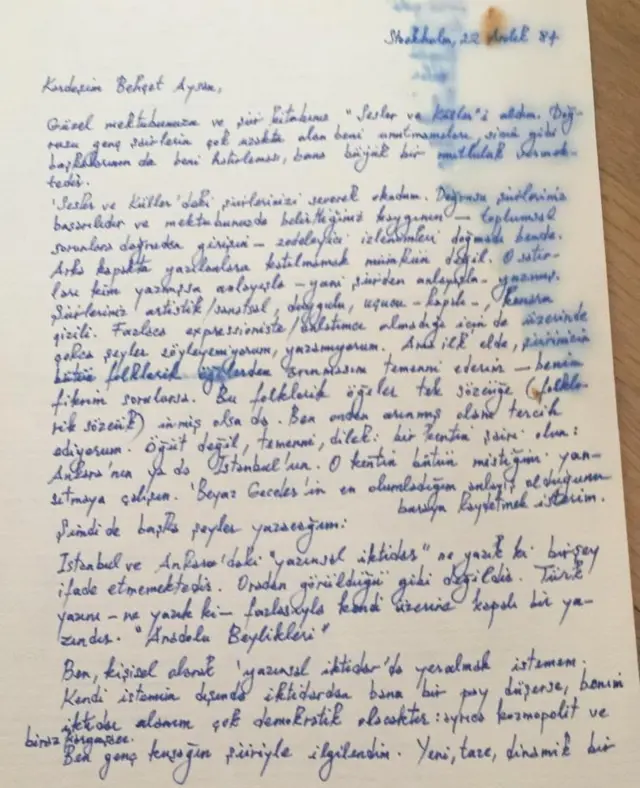 Stockholm, 22 Aralık 84
Kardeşim Behçet Aysan,
Güzel mektubunuzu ve şiir kitabınız "Sesler ve Küller"i aldım. Doğ-
rusu genç şairlerin çok uzakta olan beni unutmamaları, sizin gibi
başkalarının da beni hatırlaması, bana büyük bir mutluluk vermek-
tedir.
'Sesler ve Küller'deki şiirlerinizi severek okudum. Doğrusu şiirleriniz
başarılıdır ve mektubunuzda belirttiğiniz kaygının — toplumsal
sorunlara doğrudan girişin — zedeleyici izlenimleri doğmadı bende.
Arka kapakta yazılanlara katılmamak mümkün değil. O satır-
ları kim yazmışsa anlayışla — yani şiirden anlayışla — yazmış.
Şiirleriniz artistik/sanatsal, duygulu, uçucu — kapalı —, kenarı
çizili. Fazlaca expressioniste/anlatımcı olmadığı için de üzerinde
çokça şeyler söyleyemiyorum, yazamıyorum. Ama ilk elde, şiirinizin
bütün folklorik öğelerden arınmasını temenni ederim — benim
fikrim sorulursa. Bu folklorik öğeler tek sözcüğe (folklo-
rik sözcük) inmiş olsa da. Ben ondan arınmış olanı tercih
ediyorum. Öğüt değil, temenni, dilek: bir kentin şairi olun:
Ankara'nın ya da İstanbul'un. O kentin bütün mistiğini yan-
sıtmaya çalışın. 'Beyaz Geceler'in en olumladığım anlayış olduğunu
buraya kaydetmek isterim.
Şimdi de başka şeyler yazacağım:
İstanbul ve Ankara'daki "yazınsal iktidar" ne yazık ki birşey
ifade etmemektedir. Oradan görüldüğü gibi değildir. Türk
yazını — ne yazık ki — fazlasıyla kendi üzerine kapalı bir ya-
zındır. "Anadolu Beylikleri"
Ben, kişisel olarak 'yazınsal iktidar'da yeralmak istemem.
Kendi istemim dışında iktidardan bana bir pay düşerse, benim
iktidar alanım çok demokratik olacaktır: ayrıca kozmopolit ve
biraz kargaşacı.
Ben genç kuşağın şiiriyle ilgilendim. Yeni, taze, dinamik bir